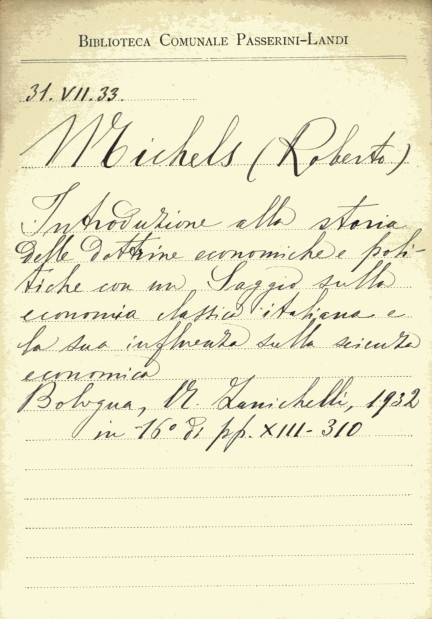 BIBLIOTECA COMUNALE PASSERINI-LANDI
31.VII.33.
Michels (Roberto)
Introduzione alla storia
delle dottrine economiche e poli-
tiche con un Saggio sulla
economia classica italiana e
la sua influenza sulla scienza
economica
Bologna, N. Zanichelli, 1932
in 16° di pp. XIII-310